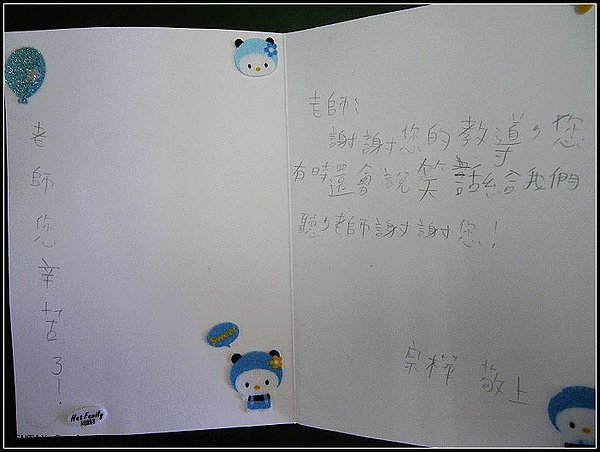 老師您辛苦了!
Sweet
Hat Family
老師:
謝謝您的教導,您
有時還會說笑話給我們
聽,老師謝謝您!
敬上